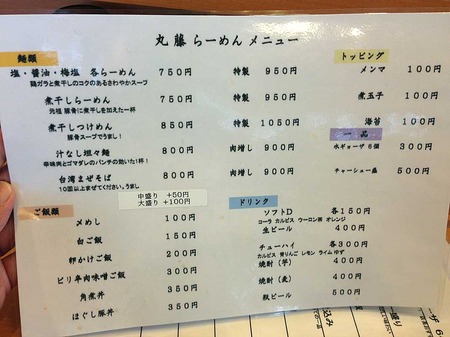 丸藤 らーめん メニュー
麺類
塩・醤油・梅塩 各らーめん 750円 特製 950円
鶏ガラと煮干しのコクのあるさわやかスープ
煮干しらーめん 750円 特製 950円
元祖 豚骨に煮干しを加えた一杯
煮干しつけめん 850円 特製 1050円
豚骨スープでうまし!
汁なし坦々麺 800円 肉増し 900円
辛味肉とゴマダレのパンチの効いた1杯!
台湾まぜそば 800円 肉増し 900円
10回以上まぜてください。うまし
中盛り +50円
大盛り +100円
トッピング
メンマ 100円
煮玉子 100円
海苔 100円
一品
水ギョーザ 6個 300円
チャーシュー盛 500円
ご飯類
メめし 100円
白ご飯 150円
卵かけご飯 200円
ピリ辛肉味噌ご飯 300円
角煮丼 350円
ほぐし豚丼 350円
ドリンク
ソフトD 各150円
コーラ カルピス ウーロン茶 オレンジ
生ビール 400円
チューハイ 各300円
カルピス 青りんご レモン ライム ゆず
焼酎(芋) 400円
焼酎(麦) 400円
瓶ビール 500円